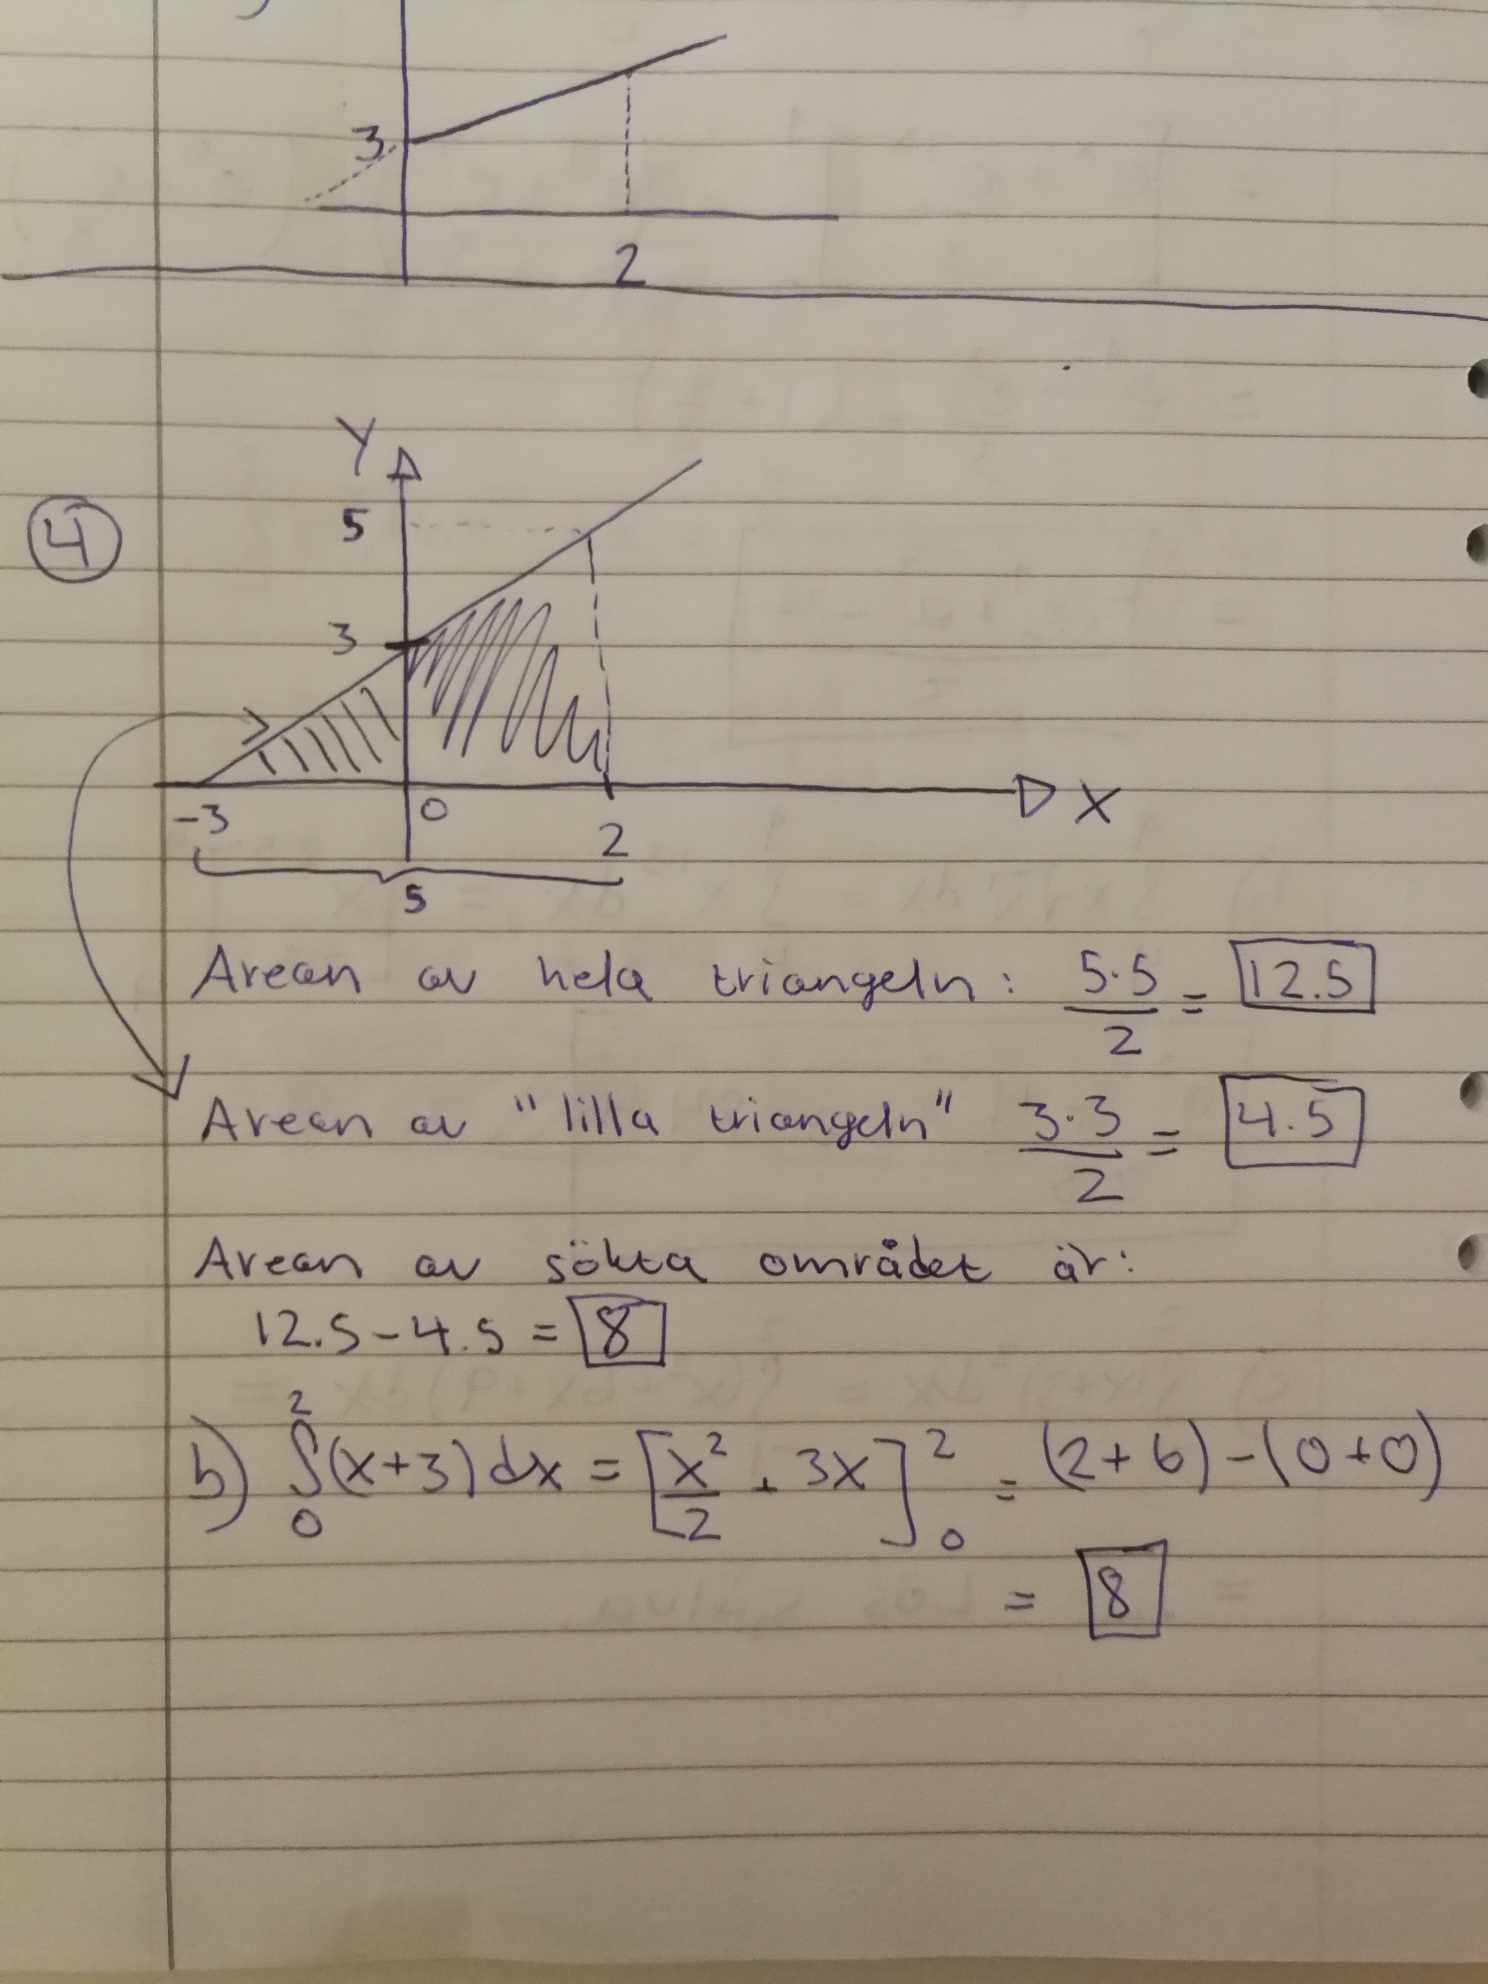 3
2
4
Y
5
3
-3 0 2 X
5
Arean av hela triangeln: 5·5/2 = 12.5
Arean av "lilla triangeln" 3·3/2 = 4.5
Arean av sökta området är:
12.5-4.5 = 8
b) ∫₀²(x+3)dx = [x²/2 + 3x]₀² = (2+6)-(0+0)
= 8